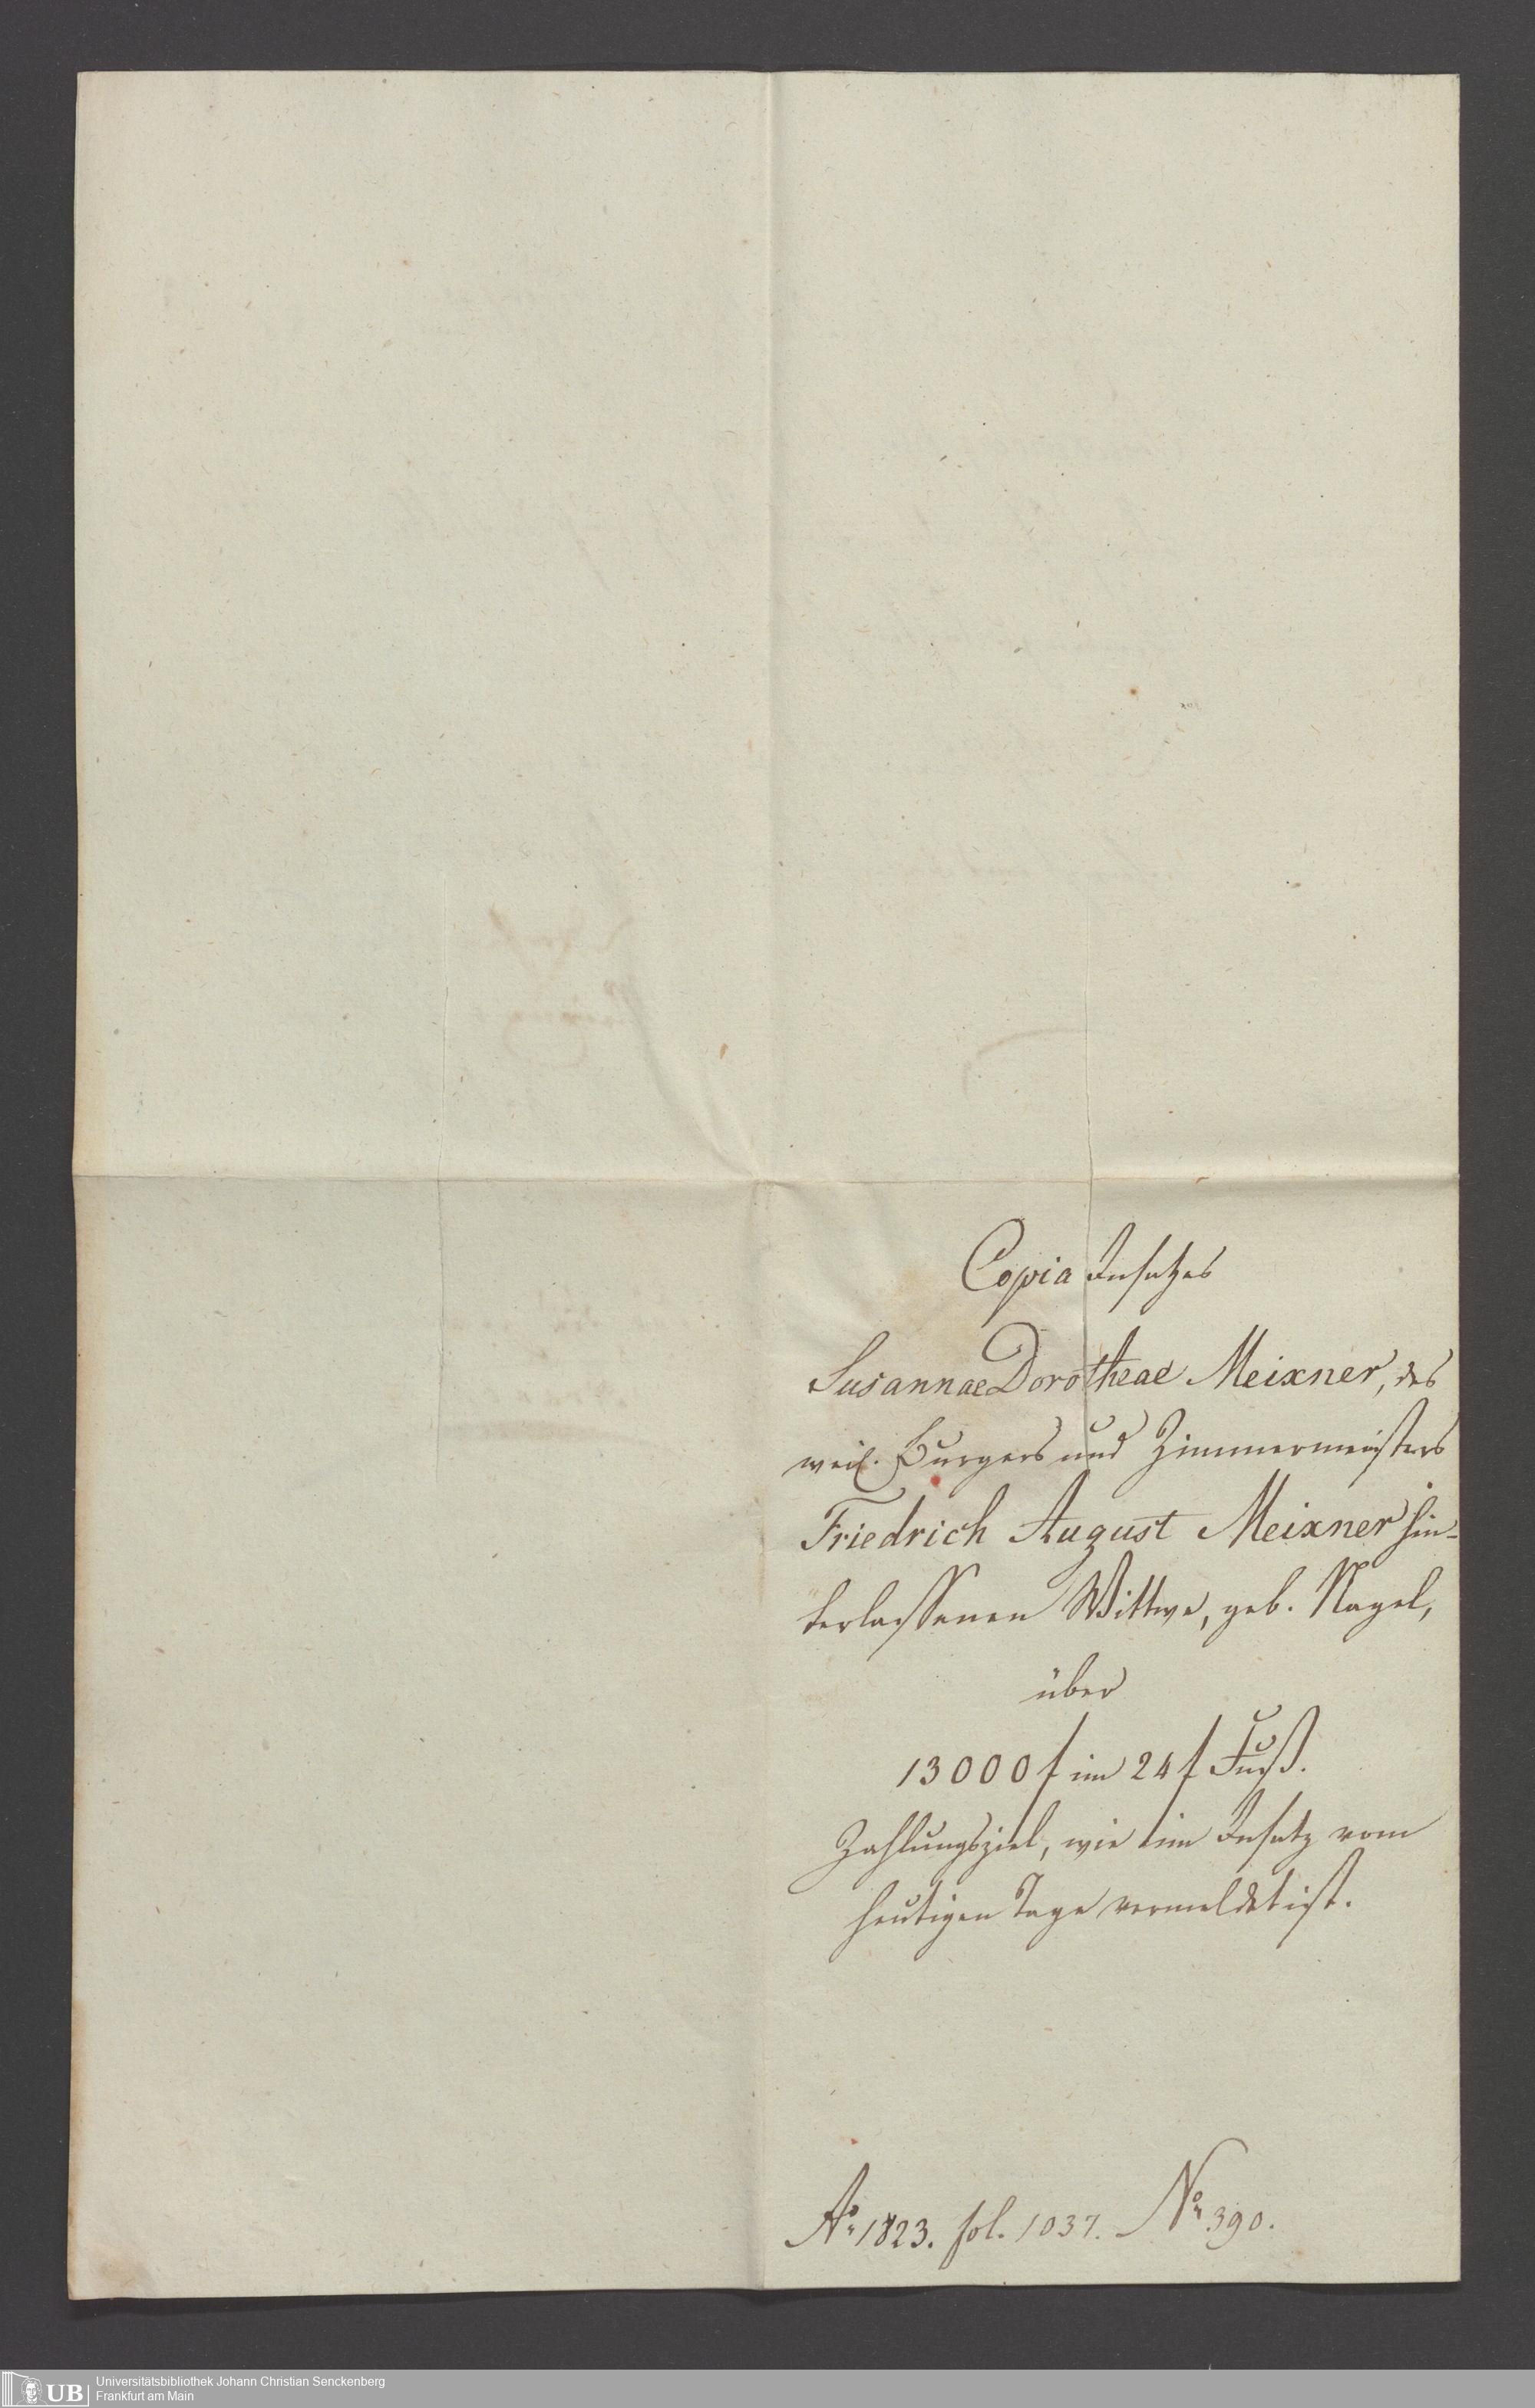 Copia Insatzes
Susannae Dorotheae Meixner, des
weil. Burgers und Zimmermeisters
Friedrich August Meixner hin-
terlassenen Wittwe, geb. Nagel,
über
13000 f im 24 f Fuß.
Zahlungsziel, wie im Insatz vom
heutigen Tage vermeldet ist.
Ao. 1823. fol. 1037. No. 390.
UB
Universitätsbibliothek Johann Christian Senckenberg
Frankfurt am Main